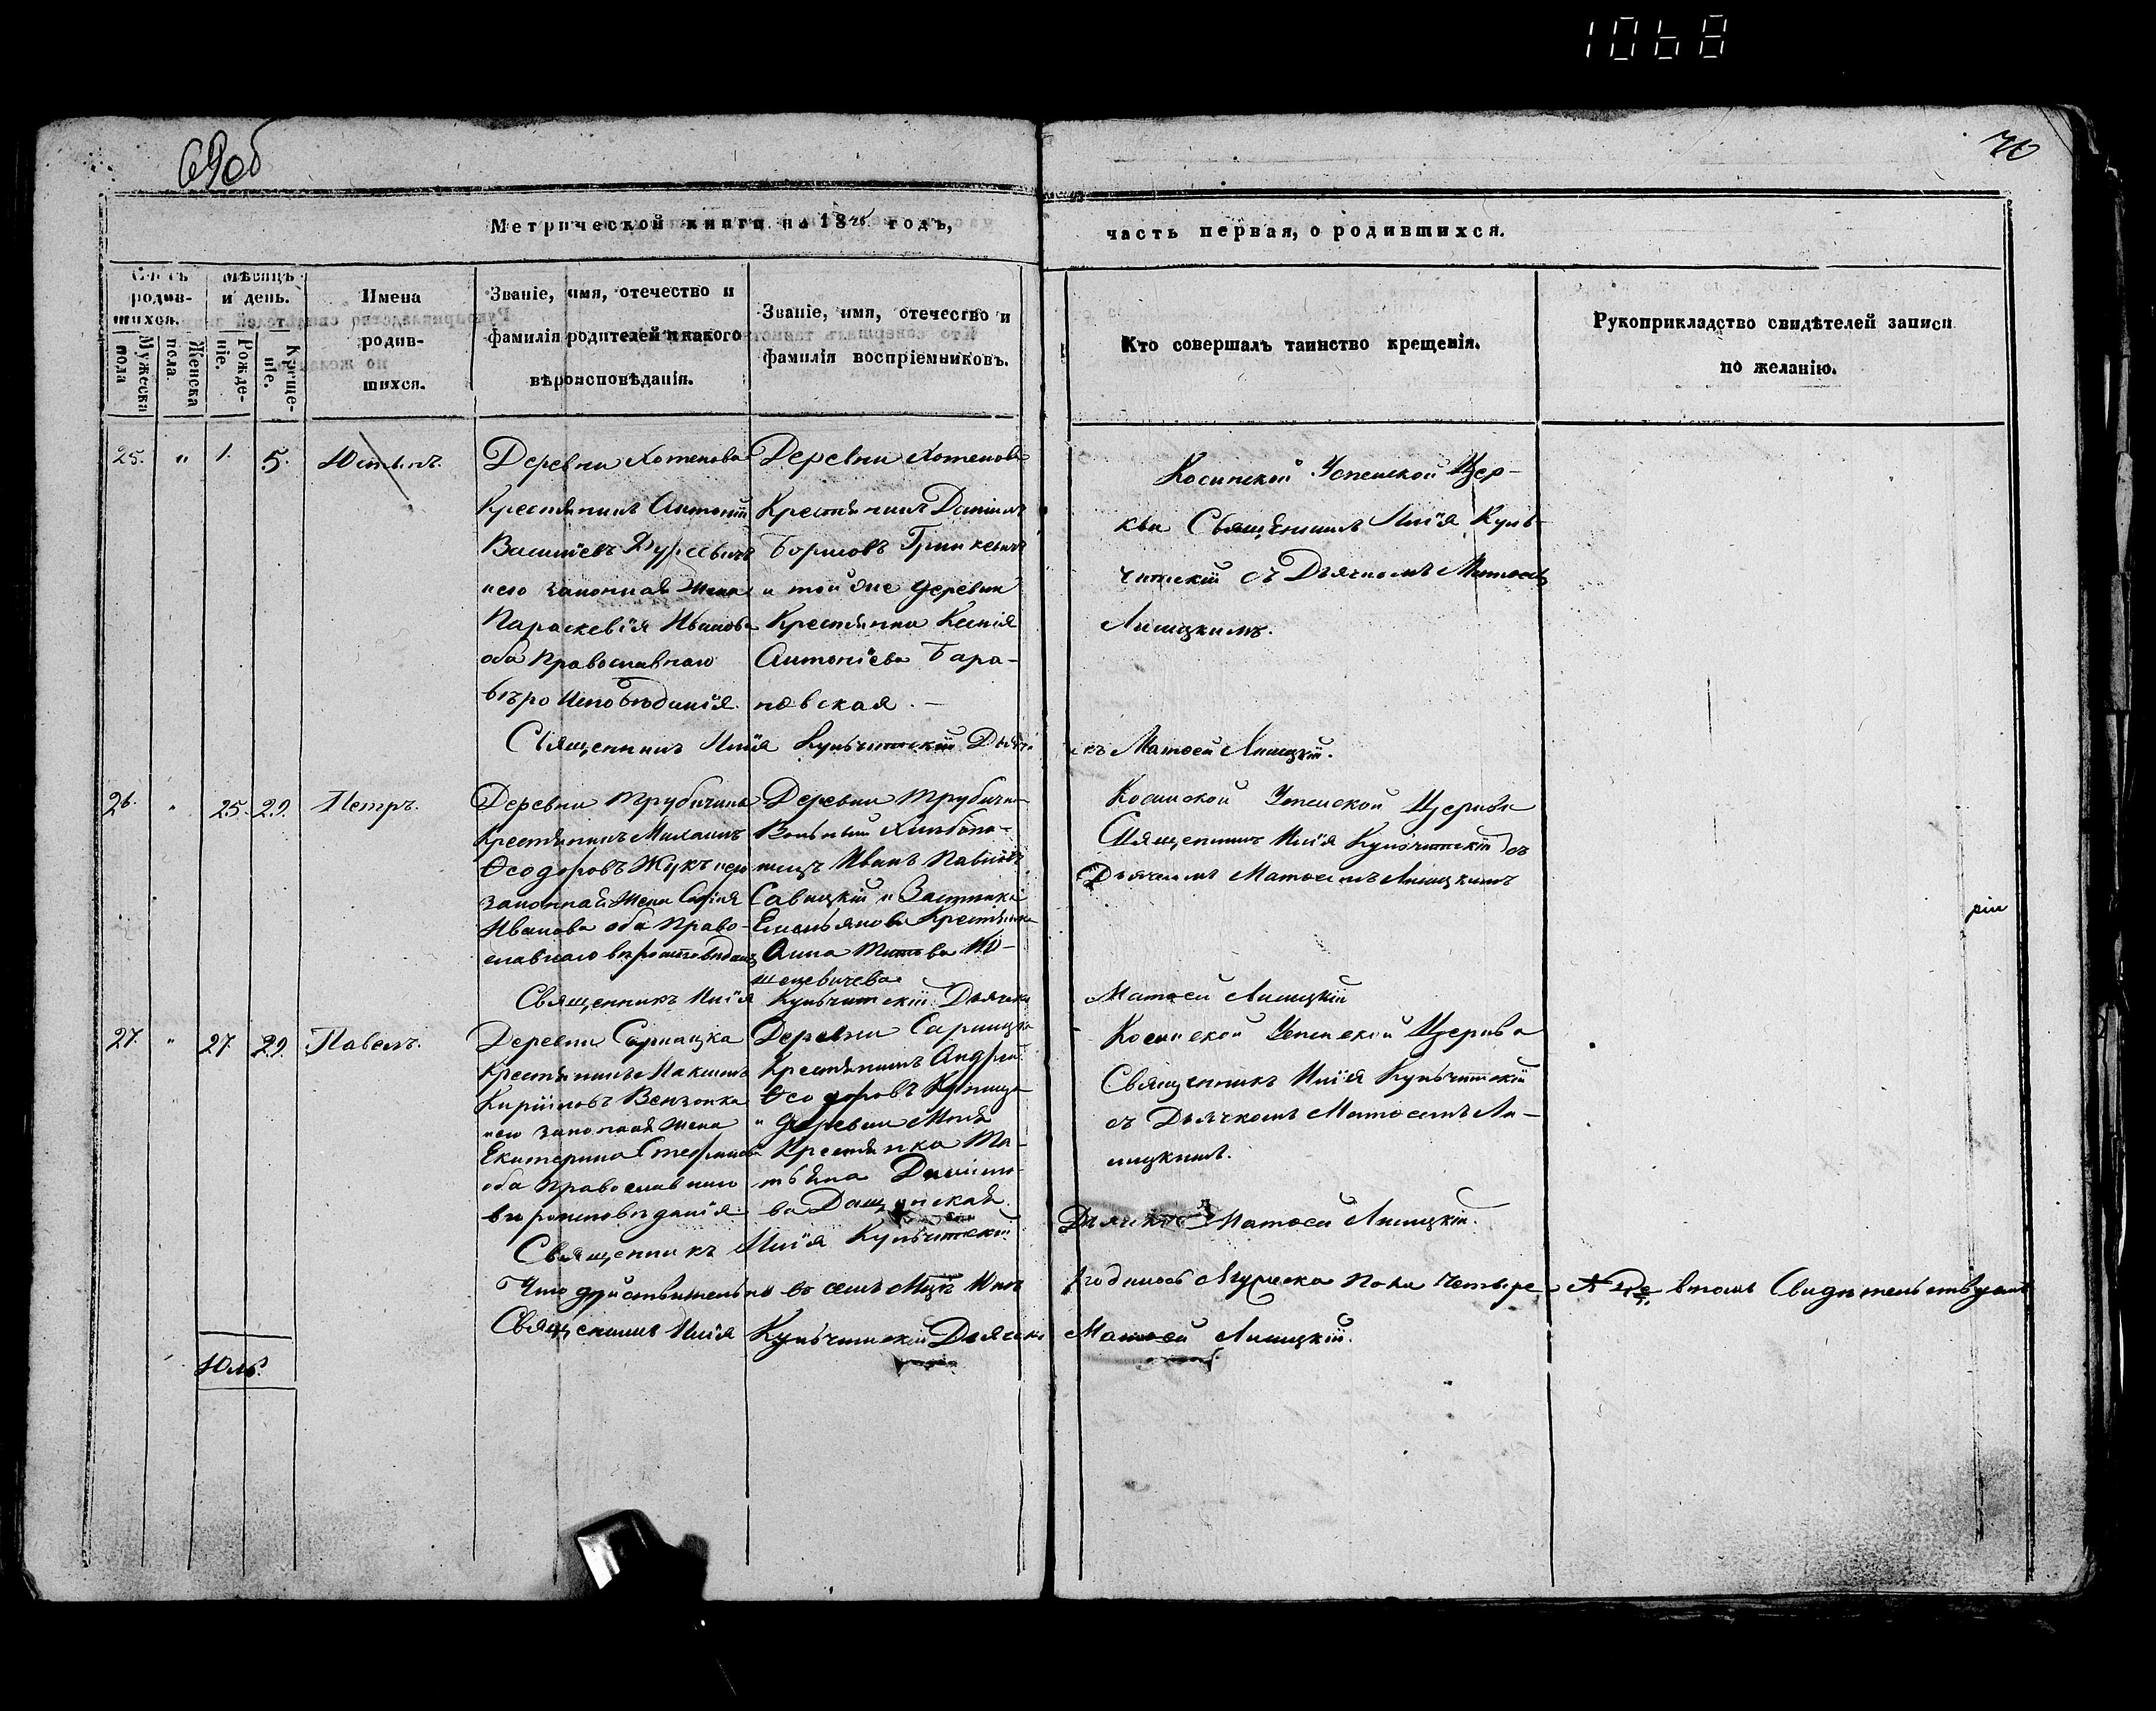 1068
69об
70
Метрической книги на 1846 годъ,
часть первая, о родившихся.
Счетъ родив-
шихся.
Мужеска пола
Женска пола.
Мѣсяцъ и день.
Рожде-
ніе.
Креще-
ніе.
Имена
родив-
шихся.
Званіе, имя, отечество и
фамилія родителей и какого
вѣроисповѣданія.
Званіе, имя, отечество и
фамилія воспріемниковъ.
Кто совершалъ таинство крещенія.
Рукоприкладство свидѣтелей записи
по желанію.
25. " 1. 5. Юстынъ.
Деревни Хотенова
Крестянинъ Антоній
Василіевъ
и его законная жена
Параскевія Иванова
оба Православнаго
вѣроисповѣданія.
Деревни Хотенова
Крестянинъ Даніилъ
Борисовъ Гринкевичъ
и той же деревни
Крестянка Ксенія
Антоніева Бара-
новская. —
Косинской Успенской Цер-
кви Священникъ Илія Куль-
читскій съ Дьячкомъ Матѳеемъ
Лисицкимъ.
Священникъ Илія Кульчитскій Дьячекъ Матѳей Лисицкій.
26. " 25. 29. Петръ.
Деревни Трубичина
Крестянинъ Михаилъ
Ѳеодоровъ Жукъ и его
законная жена Софія
Иванова оба Право-
славнаго вѣроисповѣданія
Деревни Трубичи-
Вольный Хлѣбопа-
шецъ Иванъ Павловъ
Савицкій и Застѣнка
Емельянова Крестянка
Анна Титова Ко-
шецевичева
Косинской Успенской Церкви
Священникъ Илія Кульчитскій съ
Дьячкомъ Матѳеемъ Лисицкимъ
Священникъ Илія Кульчитскій Дьячекъ Матѳей Лисицкій
27. " 27. 29. Павелъ.
Деревни Сариацка
Крестянинъ Максимъ
Кириловъ Вензонка
и его законная жена
Екатерина Стефанова
оба Православнаго
вѣроисповѣданія
Деревни Сарицка
Крестянинъ Андрей
Ѳеодоровъ Купица
и деревни
Крестянка Та-
тьяна Даніило-
ва Дащинская.
Косинской Успенской Церкви
Священникъ Илія Кульчитскій
съ Дьячкомъ Матѳеемъ Ли-
сицкимъ.
Священникъ Илія Кульчитскій Дьячекъ Матѳей Лисицкій.
Что дѣйствительно въ семъ Мцѣ Июнѣ родилось Мужеска пола четыре въ томъ Свидѣтельствуемъ
Священникъ Илія Кульчитскій Дьячекъ Матѳей Лисицкій.
Юль.